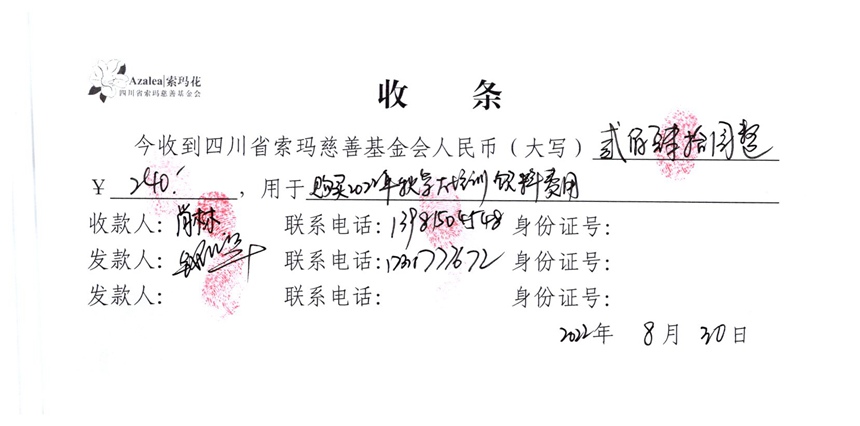 Azalea|索玛花
四川省索玛慈善基金会
收 条
今收到四川省索玛慈善基金会人民币（大写）贰佰肆拾圆整
￥240.-，用于购买2022年秋学大培训饮料费用
收款人：肖林 联系电话： 身份证号：
发款人： 联系电话： 身份证号：
发款人： 联系电话： 身份证号：
2022年 8月 30日